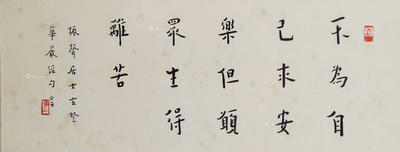 不為自
己求安
樂但願
眾生得
離苦
振聲居士玄登
華嚴經句